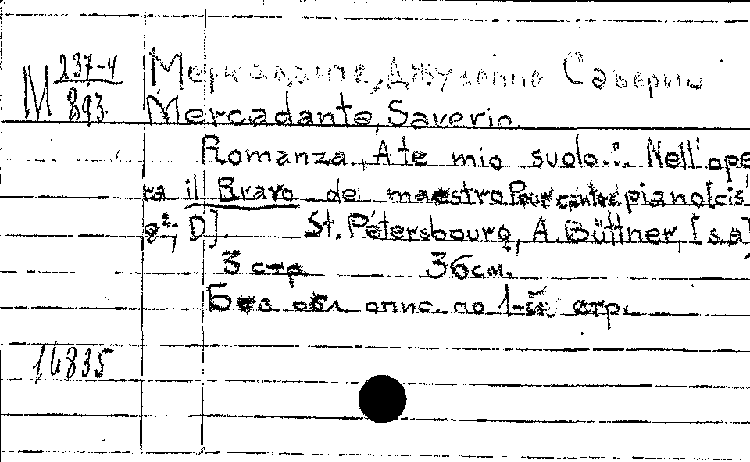 М 237-4/893
Меркаданте, Джузеппе Саверио
Mercadante, Saverio.
Romanza. „A te mio suolo." Nell'ope
ra il Bravo de maestro. Pour contre piano [cis
g², D]. St. Pétersbourg, A. Büttner, [s.a]
3 стр 36 см.
Без обл опис. по 1-й стр.
16835